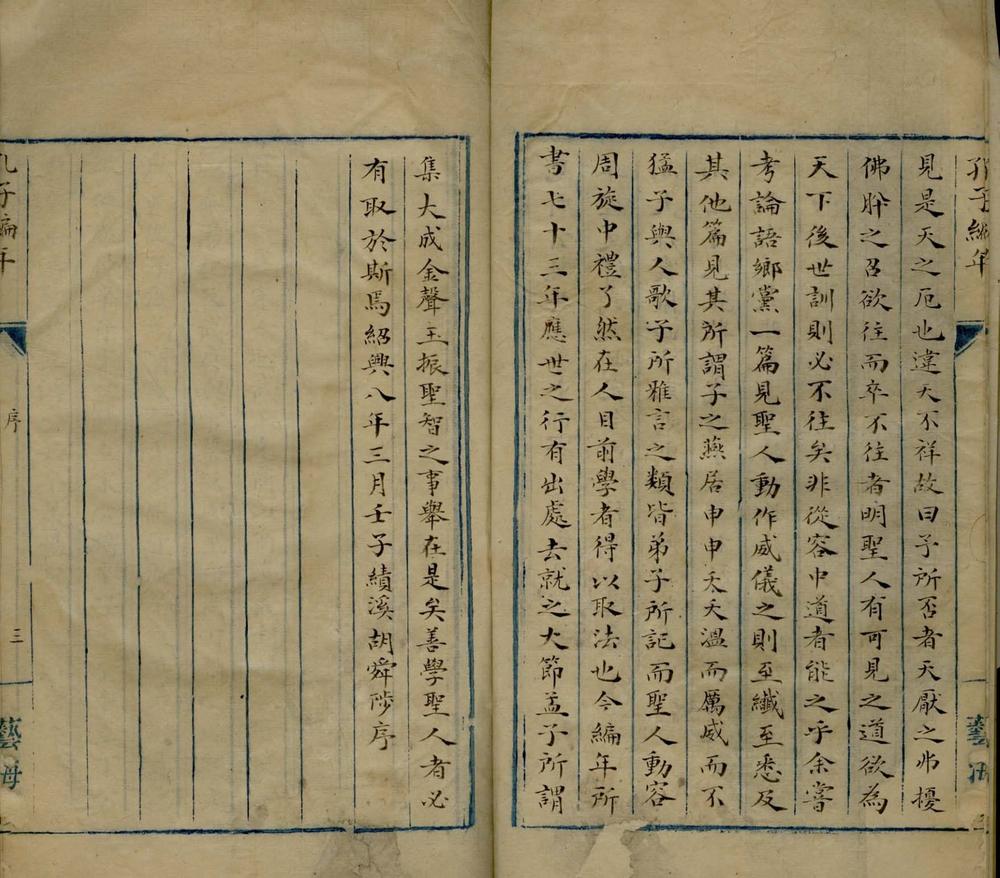 孔子編年
見是天之厄也違天不祥故曰予所否者天厭之弗擾
佛肸之召欲往而卒不往者明聖人有可見之道欲為
天下後世訓則必不往矣非從容中道者能之乎余嘗
考論語鄉黨一篇見聖人動作威儀之則至纖至悉及
其他篇見其所謂子之燕居申申夭夭溫而厲威而不
猛子與人歌子所雅言之類皆弟子所記而聖人動容
周旋中禮了然在人目前學者得以取法也今編年所
書七十三年應世之行有出處去就之大節孟子所謂
集大成金聲玉振聖智之事舉在是矣善學聖人者必
有取於斯焉紹興八年三月壬子績溪胡舜陟序
孔子編年
序
三
藝海